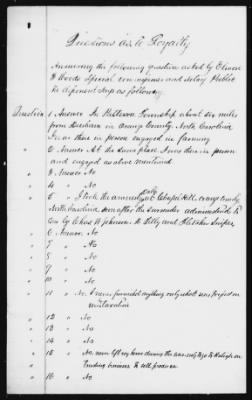 Questions as to Loyalty
Answering the following question asked by Elmer
H Woods Special commissioner and Notary Public
he deponent says as follows.
Question 1 Answer In Patterson Township about six miles
from Durham in Orange County, North Carolina
I was there in person engaged in farming
2 Answer At the same place I was there in person
and engaged as above mentioned.
3 Answer No
4 " No
5 I took the amnesty oath at Chapel Hill, Orange County
North Carolina soon after the surrender administered to
by Chas W Johnson. H Lilly and Fletcher
6 Answer. No.
7 " No
8 " No
9 " No
10 " No
11 " No. I never furnished anything only what was forced on
12 " No
13 " No
14 " No.
15 " No. never left my home during the war only to go to Raleigh on
trading business to sell produce
16 " No.